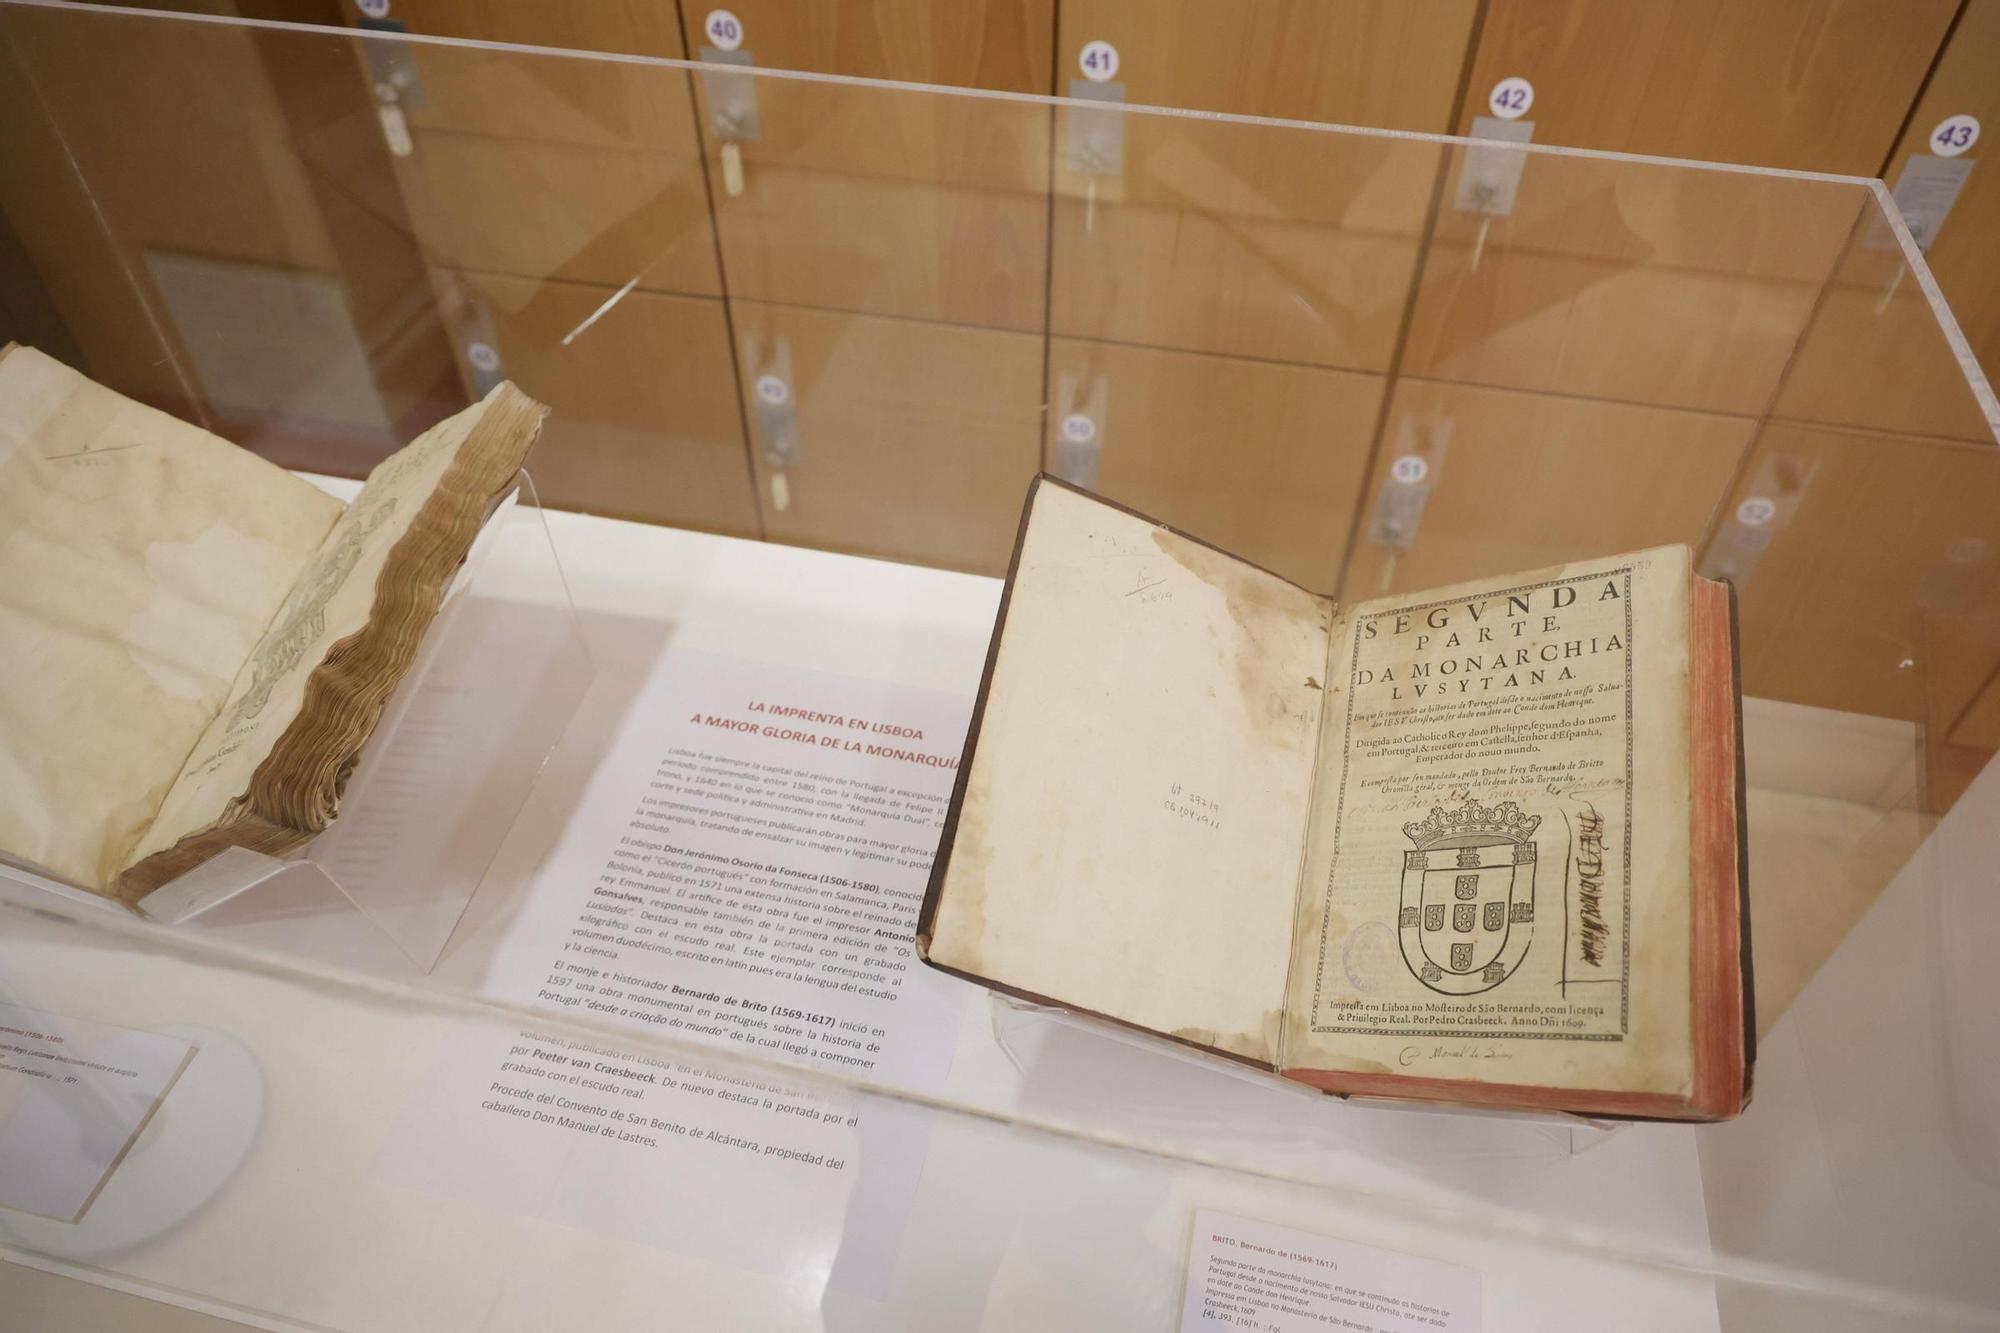 39
40
41
42
43
49
50
51
52
LA IMPRENTA EN LISBOA
A MAYOR GLORIA DE LA MONARQUÍA
Lisboa fue siempre la capital del reino de Portugal a excepción
período comprendido entre 1580, con la llegada de Felipe II
trono, y 1640 en lo que se conoció como "Monarquía Dual",
corte y sede política y administrativa en Madrid.
Los impresores portugueses publicarán obras para mayor gloria
la monarquía, tratando de ensalzar su imagen y legitimar su
absoluto.
El obispo Don Jerónimo Osorio da Fonseca (1506-1580),
como el "Cicerón portugués" con formación en Salamanca, París
Bolonia, publicó en 1571 una extensa historia sobre el reinado de
rey Emmanuel. El artífice de esta obra fue el impresor Antonio
Gonsalves, responsable también de la primera edición de "Os
Lusiadas". Destaca en esta obra la portada con un grabado
xilográfico con el escudo real. Este ejemplar corresponde al
volumen duodécimo, escrito en latín pues era la lengua del estudio
y la ciencia.
El monje e historiador Bernardo de Brito (1569-1617) inició en
1597 una obra monumental en portugués sobre la historia de
Portugal "desde a criação do mundo" de la cual llegó a componer
volumen, publicado en Lisboa "en el Monasterio de San
por Peeter van Craesbeeck. De nuevo destaca la portada por el
grabado con el escudo real.
Procede del Convento de San Benito de Alcántara, propiedad del
caballero Don Manuel de Lastres.
SEGVNDA
PARTE,
DA MONARCHIA
LVSYTANA.
Em que se continuão as historias de Portugal desde o nacimento de nosso Salua-
dor IESV Christo, ate ser dado em dote ao Conde dom Henrique.
Dirigida ao Catholico Rey dom Phelippe, segundo do nome
em Portugal, & terceiro em Castella, senhor d'Espanha,
Emperador do nouo mundo.
E composta por seu mandado, pello Doutor Frey Bernardo de Britto
Chronista géral, & monge da Ordem de São Bernardo.
Impressa em Lisboa no Mosteiro de São Bernardo, com licença
& Priuilegio Real. Por Pedro Crasbeeck. Anno Dñi 1609.
BRITO, Bernardo de (1569-1617)
Segunda parte da monarchia lusytana: en que se continuão as historias de
Portugal desde o nacimento de nosso Salvador IESU Christo, ate ser dado
en dote ao Conde don Henrique.
Impressa em Lisboa no Monasterio de São Bernardo
Crasbeeck, 1609
[4], 393, [16] h. ; Fol